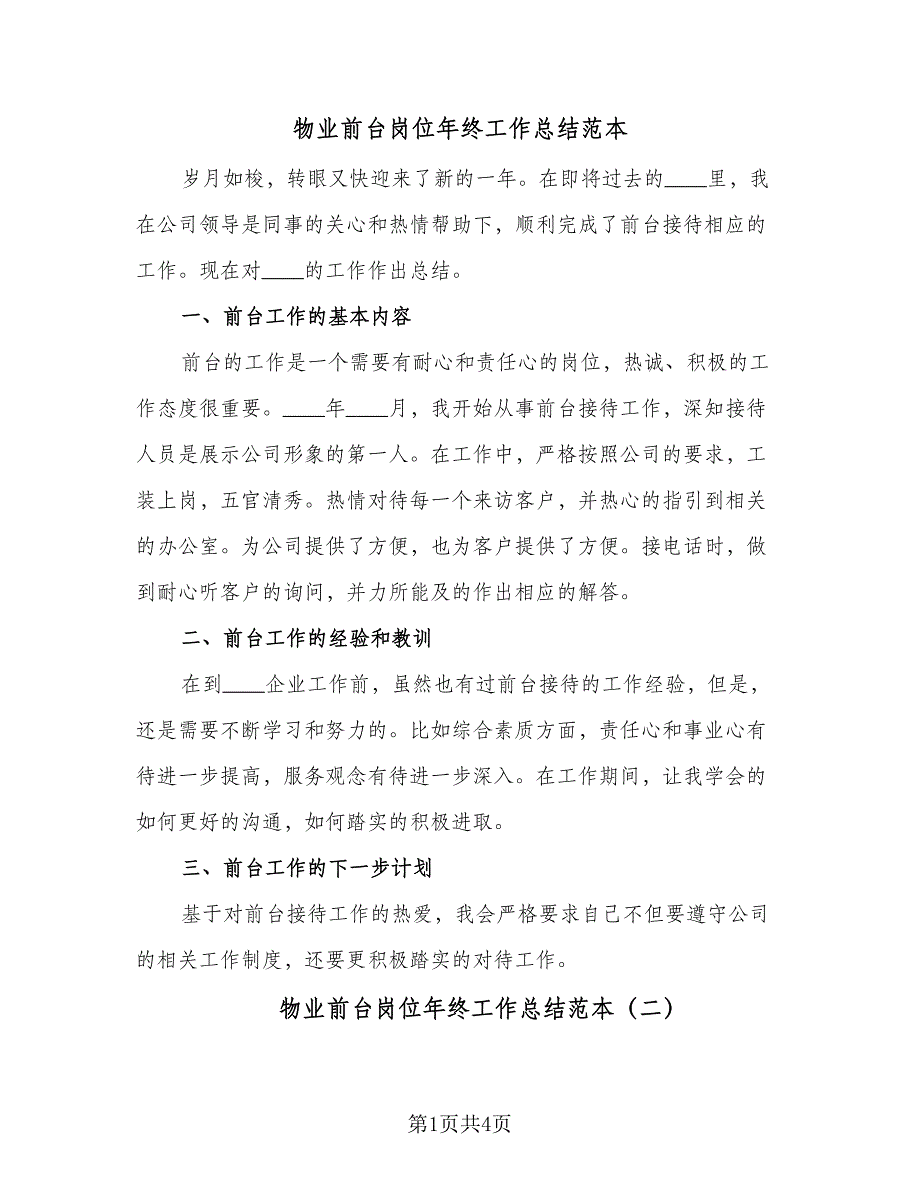 物业前台岗位年终工作总结范本
岁月如梭，转眼又快迎来了新的一年。在即将过去的____里，我
在公司领导是同事的关心和热情帮助下，顺利完成了前台接待相应的
工作。现在对____的工作作出总结。
一、前台工作的基本内容
前台的工作是一个需要有耐心和责任心的岗位，热诚、积极的工
作态度很重要。____年____月，我开始从事前台接待工作，深知接待
人员是展示公司形象的第一人。在工作中，严格按照公司的要求，工
装上岗，五官清秀。热情对待每一个来访客户，并热心的指引到相关
的办公室。为公司提供了方便，也为客户提供了方便。接电话时，做
到耐心听客户的询问，并力所能及的作出相应的解答。
二、前台工作的经验和教训
在到____企业工作前，虽然也有过前台接待的工作经验，但是，
还是需要不断学习和努力的。比如综合素质方面，责任心和事业心有
待进一步提高，服务观念有待进一步深入。在工作期间，让我学会的
如何更好的沟通，如何踏实的积极进取。
三、前台工作的下一步计划
基于对前台接待工作的热爱，我会严格要求自己不但要遵守公司
的相关工作制度，还要更积极踏实的对待工作。
物业前台岗位年终工作总结范本（二）
第1页共4页